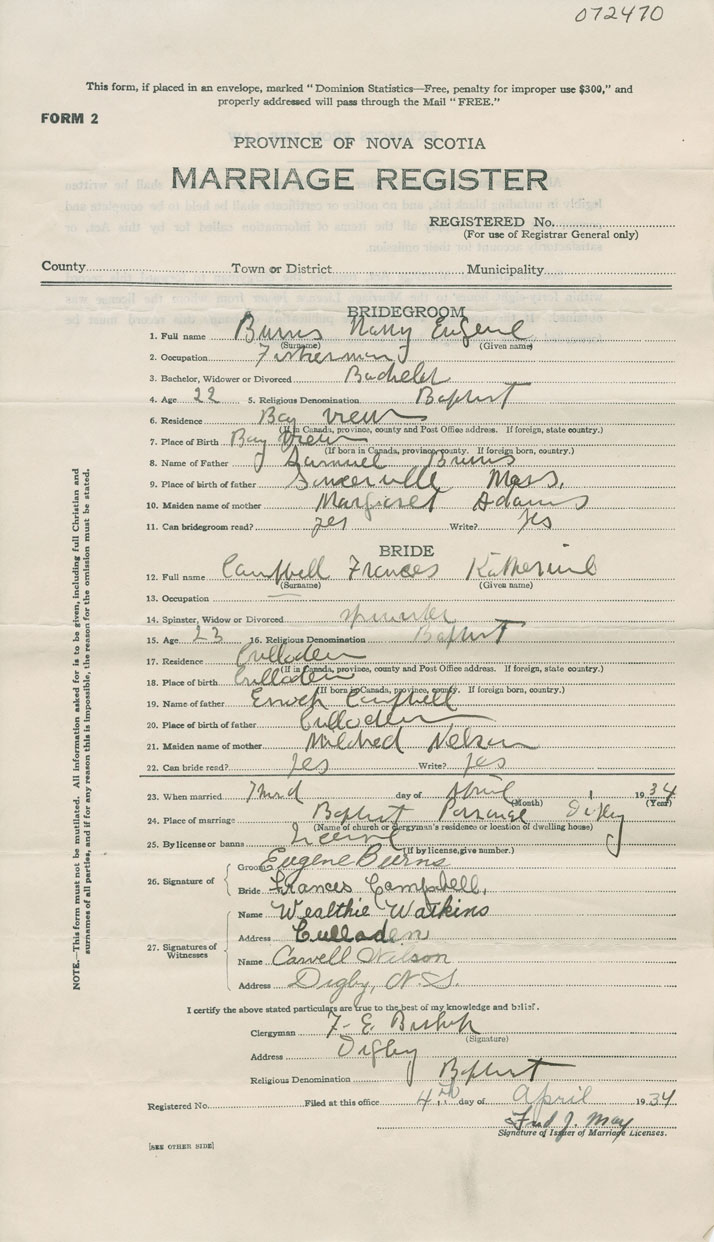 072470
This form, if placed in an envelope, marked "Dominion Statistics—Free, penalty for improper use $300," and
properly addressed will pass through the Mail "FREE."
FORM 2
PROVINCE OF NOVA SCOTIA
MARRIAGE REGISTER
REGISTERED No.
(For use of Registrar General only)
County Town or District Municipality
BRIDEGROOM
1. Full name Burns Harry Eugene
(Surname) (Given name)
2. Occupation Fisherman
3. Bachelor, Widower or Divorced Bachelor
4. Age 22 5. Religious Denomination Baptist
6. Residence Bay View
(If in Canada, province, county and Post Office address. If foreign, state country.)
7. Place of Birth Bay View
(If born in Canada, province, county. If foreign born, country.)
8. Name of Father Samuel Burns
9. Place of birth of father Mass.
10. Maiden name of mother Margaret Adams
11. Can bridegroom read? yes Write? yes
BRIDE
12. Full name Campbell Frances Katherine
(Surname) (Given name)
13. Occupation —
14. Spinster, Widow or Divorced spinster
15. Age 23 16. Religious Denomination Baptist
17. Residence Culloden
(If in Canada, province, county and Post Office address. If foreign, state country.)
18. Place of birth Culloden
(If born in Canada, province, county. If foreign born, country.)
19. Name of father Enoch Campbell
20. Place of birth of father Culloden
21. Maiden name of mother Mildred Nelson
22. Can bride read? yes Write? yes
23. When married Third day of April 1934
(Month) (Year)
24. Place of marriage Baptist Parsonage Digby
(Name of church or clergyman's residence or location of dwelling house)
25. By license or banns License
(If by license, give number.)
26. Signature of Groom Eugene Burns
Bride Frances Campbell,
27. Signatures of Witnesses
Name Wealthie Watkins
Address Culloden
Name Carvell Wilson
Address Digby, N.S.
I certify the above stated particulars are true to the best of my knowledge and belief.
Clergyman F. E. Bishop
(Signature)
Address Digby
Religious Denomination Baptist
Registered No. Filed at this office 4th day of April 1934
Fred J. May
Signature of Issuer of Marriage Licenses.
[SEE OTHER SIDE]
NOTE.—This form must not be mutilated. All information asked for is to be given, including full Christian and
surnames of all parties, and if for any reason this is impossible, the reason for the omission must be stated.